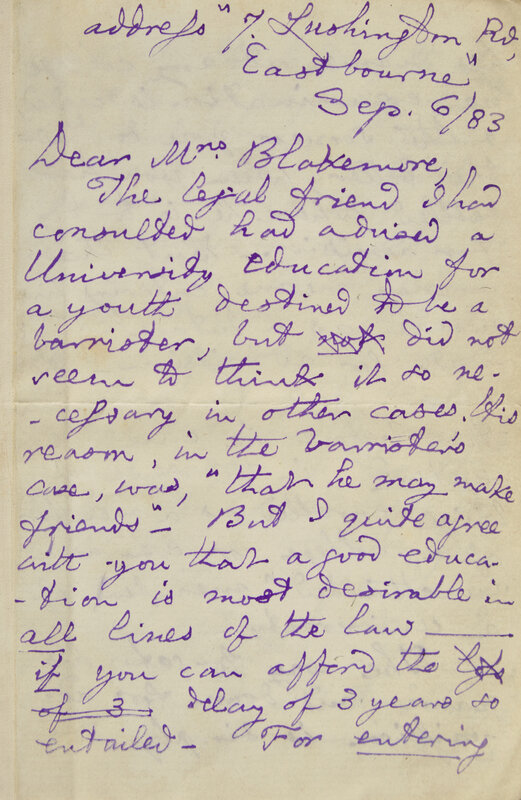 address "7. Lushington Rd,
Eastbourne"
Sep. 6/83
Dear Mrs. Blakemore,
The legal friend I had
consulted had advised a
University education for
a youth destined to be a
barrister, but not did not
seem to think it so ne-
-cessary in other cases. His
reason, in the barrister's
case, was, "that he may make
friends"— But I quite agree
with you that a good educa-
-tion is most desirable in
all lines of the law ——
if you can afford the
of 3 delay of 3 years so
entailed— For entering